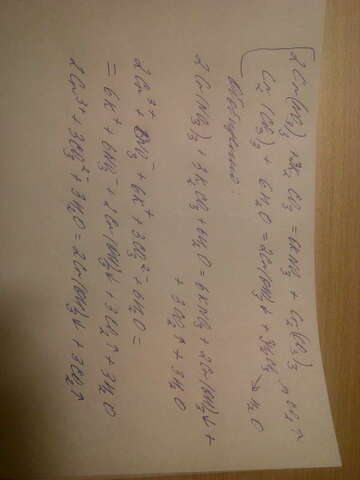 2Cr(NO3)3 + 3K2CO3 = 6KNO3 + Cr2(CO3)3
Cr2(CO3)3 + 6H2O = 2Cr(OH)3↓ + 3H2CO3
H2O
2Cr(NO3)3 + 3K2CO3 + 6H2O = 6KNO3 + 2Cr(OH)3↓ +
+ 3CO2↑ + 3H2O
2Cr3+ + 6NO3- + 6K+ + 3CO3 2- + 6H2O =
= 6K+ + 6NO3- + 2Cr(OH)3↓ + 3CO2↑ + 3H2O
2Cr3+ + 3CO3 2- + 3H2O = 2Cr(OH)3↓ + 3CO2↑